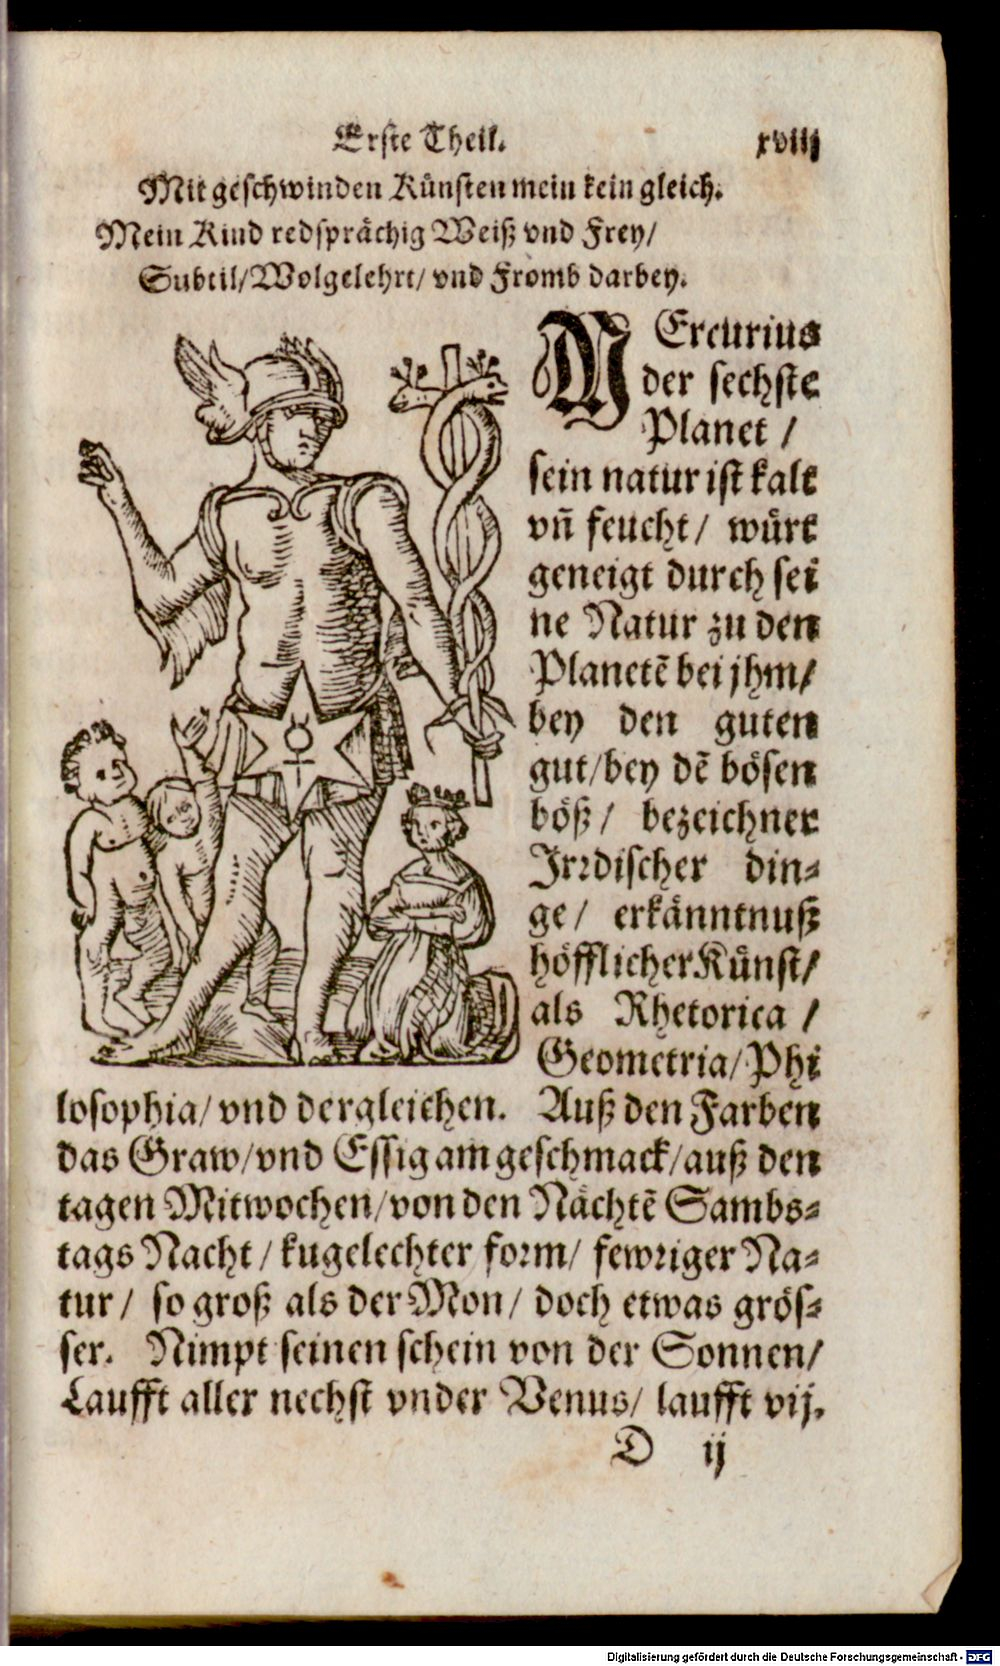 Erste Theil. xviij
Mit geschwinden Künsten mein kein gleich.
Mein Kind redsprächig Weiß vnd Frey/
Subtil/Wolgelehrt/ vnd Fromb darbey.
MErcurius
der sechste
Planet /
sein natur ist kalt
vñ feucht/ würt
geneigt durch sei
ne Natur zu den
Planetē bei jhm/
bey den guten
gut/bey dē bösen
böß/ bezeichner
Jrrdischer din-
ge/ erkänntnuß
höfflicher Künst/
als Rhetorica /
Geometria/Phi
losophia/ vnd dergleichen. Auß den Farben
das Graw/vnd Essig am geschmack/auß den
tagen Mitwochen/von den Nächtē Sambs-
tags Nacht / kugelechter form/ fewriger Na-
tur / so groß als der Mon/ doch etwas grös-
ser. Nimpt seinen schein von der Sonnen/
Laufft aller nechst vnder Venus/ laufft vij.
D ij
Digitalisierung gefördert durch die Deutsche Forschungsgemeinschaft - DFG